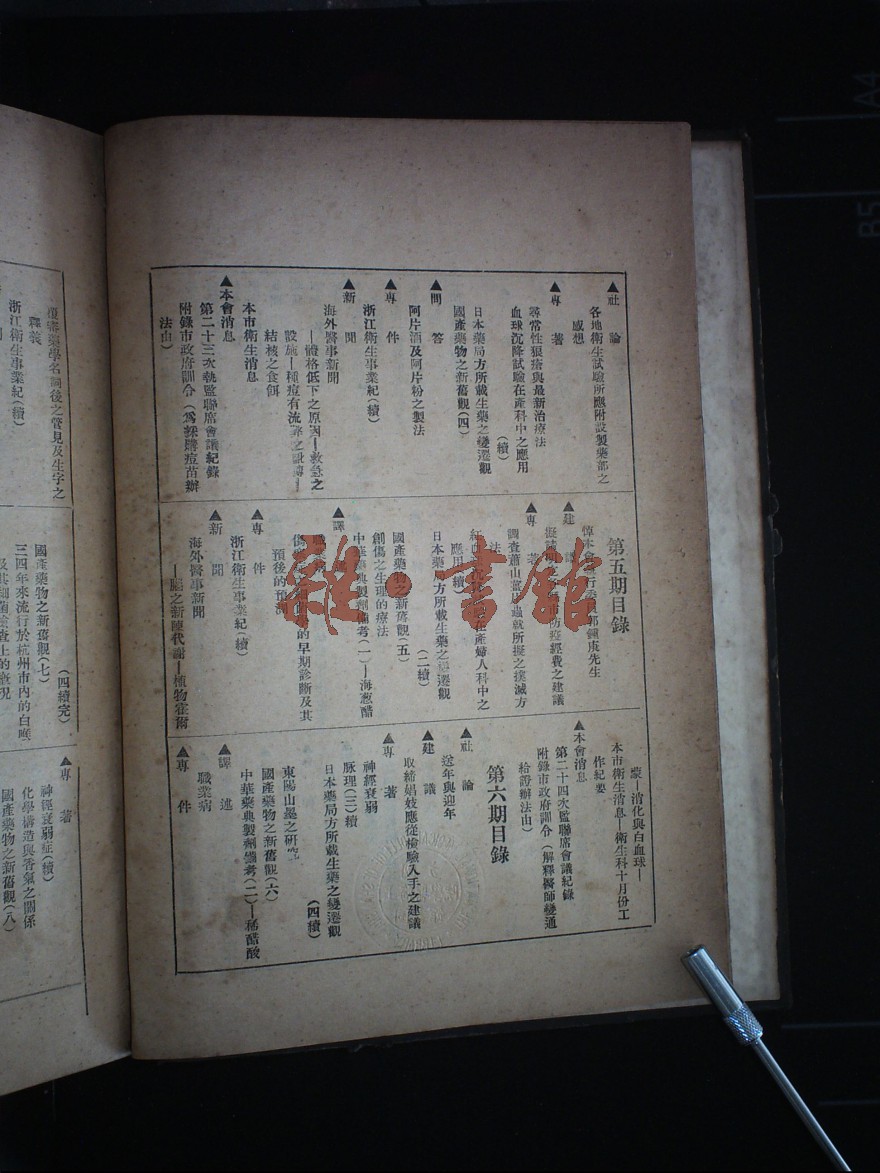 ▲社論
各地衛生試驗所應附設製藥部之
感想
▲專著
尋常性狼瘡與最新治療法
血球沉降試驗在產科中之應用
(續)
日本藥局方所載生藥之變遷觀
國產藥物之新舊觀(四)
▲問答
阿片酒及阿片粉之製法
▲專件
浙江衛生事業紀(續)
▲新聞
海外醫事新聞
—體格低下之原因—救急之
設施—種痘有流弊之
結核之食餌
本市衛生消息
▲本會消息
第二十三次執監聯席會議紀錄
附錄市政府訓令(為採購痘苗辦
法由)
第五期目錄
悼本會執行委員郭鍾庚先生
▲建
市防疫經費之建議
▲專著
調查蕭山薑片蟲就所擬之撲滅方
法
在產婦人科中之
應用(續)
日本藥局方所載生藥之變遷觀
(二續)
國產藥物之新舊觀(五)
創傷之生理的療法
中華藥典製劑備考(一)—海葱醋
▲譯
的早期診斷及其
預後的預測
▲專件
浙江衛生事業紀(續)
▲新聞
海外醫事新聞
—腸之新陳代謝—植物霍爾
蒙—消化與白血球—
本市衛生消息—衛生科十月份工
作紀要
▲本會消息
第二十四次監聯席會議紀錄
附錄市政府訓令(解釋醫師變通
給證辦法由)
第六期目錄
▲社論
送年與迎年
▲建議
取締娼妓應從檢驗入手之建議
▲專著
神經衰弱
脉理(三)續
日本藥局方所載生藥之變遷觀
(四續)
東陽山墨之研究
國產藥物之新舊觀(六)
中華藥典製劑備考(二)—稀醋酸
▲譯述
職業病
▲專件
審藥學名詞後之管見及生字之
釋義
浙江衛生事業紀(續)
(四續完)
國產藥物之新舊觀(七)
三四年來流行於杭州市內的白喉
及其細菌檢查上的概況
▲專著
神徑衰弱症(續)
化學構造與香氣之關係
國產藥物之新舊觀(八)
雜·書館
A4
B5